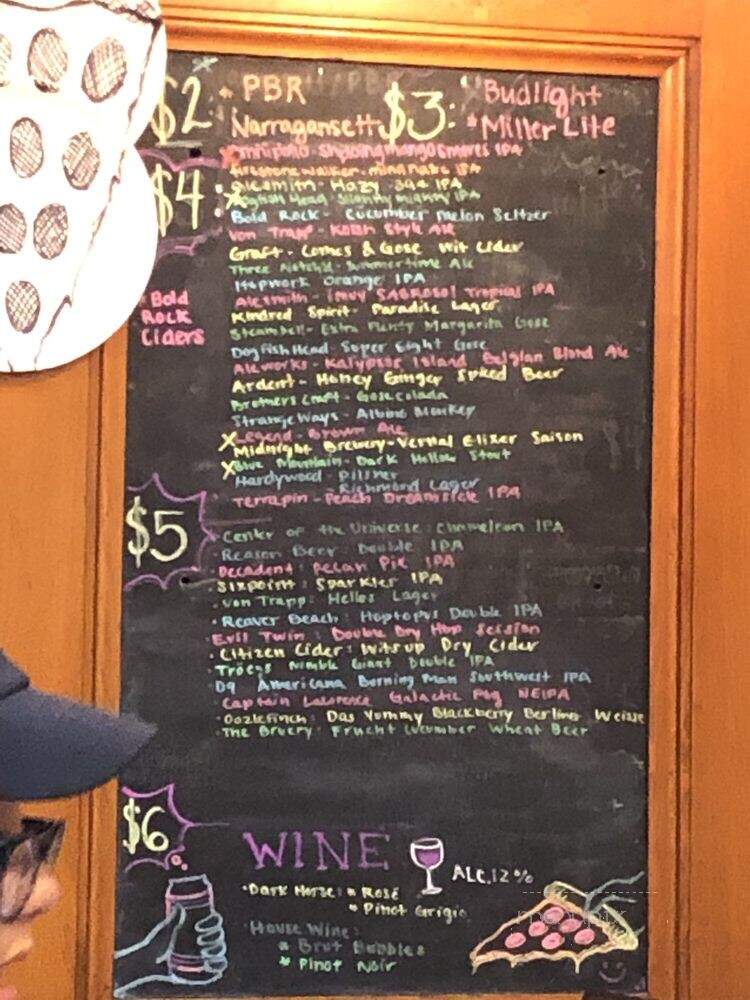 $2: PBR
Narragansett
$3: Budlight
* Miller Lite
$4:
Omnipollo - Shploing mango smores IPA
Firestone walker - mind haze IPA
Alesmith - Hazy .394 IPA
Dogfish Head - Slightly mighty IPA
Bold Rock - Cucumber melon Seltzer
Von Trapp - Kolsh Style Ale
Graft - Comes & Gose wit Cider
Three Notch'd - Summertime Ale
Hopwork Orange IPA
Bold
Rock
Ciders
Alesmith - Tropical IPA
Kindred Spirit - Paradise Lager
Steambell - Extra Plenty Margarita Gose
Dogfish Head - Super Eight Gose
Aleworks - Kalypsos Island Belgian Blond Ale
Ardent - Honey Ginger Spiced Beer
Brothers Craft - Gosecolada
Strange Ways - Albino Monkey
X Legend - Brown Ale
Midnight Brewery - Vernal Elixer Saison
X Blue Mountain - Dark Hollow Stout
Hardywood - Pilsner
Richmond Lager
Terrapin - Peach Dreamsicle IPA
$5
· Center of the Universe: Chameleon IPA
· Reason Beer: Double IPA
· Decadent: Pecan Pie IPA
· Sixpoint: Sparkler IPA
· Von Trapp: Helles Lager
· Reaver Beach: Hoptopus Double IPA
· Evil Twin: Double Dry Hop Session
· Citizen Cider: Wits up Dry Cider
· Tröegs Nimble Giant Double IPA
· D9 Americana Burning Man Southwest IPA
· Captain Lawrence Galactic Fog NEIPA
· Oozlefinch: Das Yummy Blackberry Berliner Weisse
· The Bruery: Frucht Cucumber Wheat Beer
$6
WINE
ALC. 12%
· Dark Horse: * Rosé
* Pinot Grigio
· House Wine:
* Brut Bubbles
* Pinot Noir